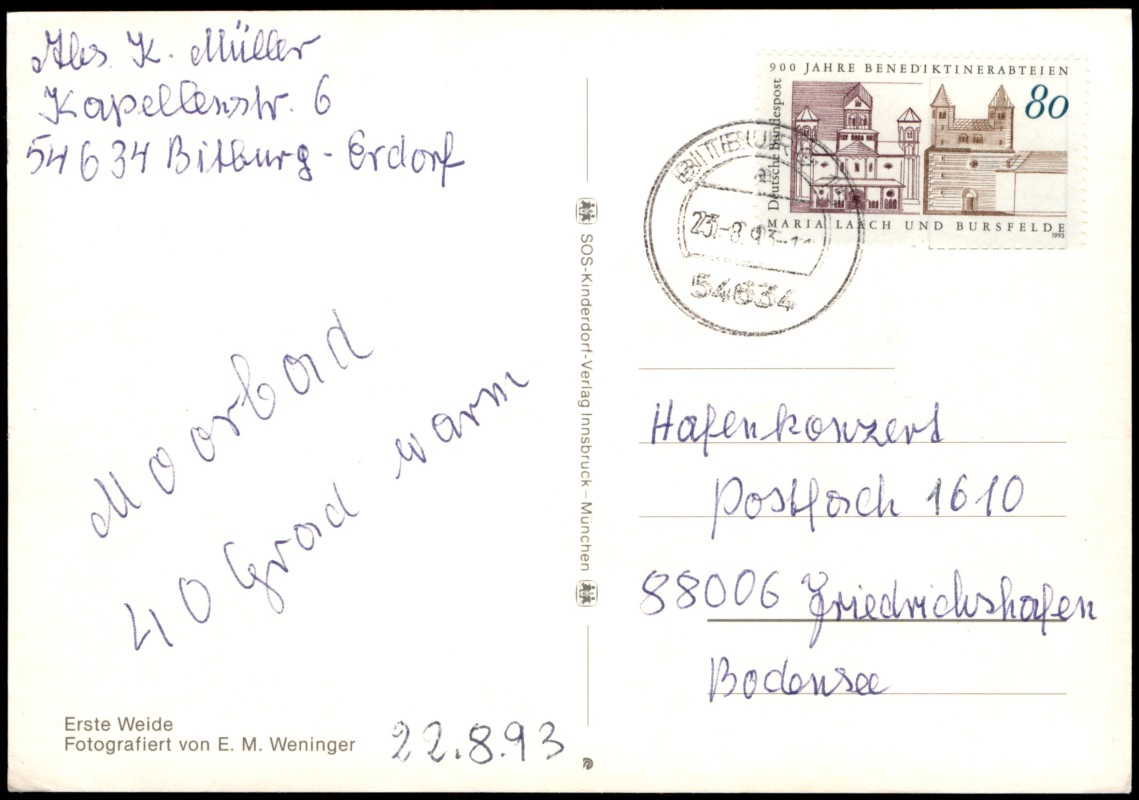 Abs. K. Müller
Kapellenstr. 6
54634 Bitburg-Erdorf
Moorbad
40 Grad warm
Erste Weide
Fotografiert von E. M. Weninger
22.8.93
SOS-Kinderdorf-Verlag Innsbruck – München
900 JAHRE BENEDIKTINERABTEIEN
80
Deutsche Bundespost
MARIA LAACH UND BURSFELDE
1993
BITBURG
23.-8.93-11
54634
Hafenkonzert
Postfach 1610
88006 Friedrichshafen
Bodensee